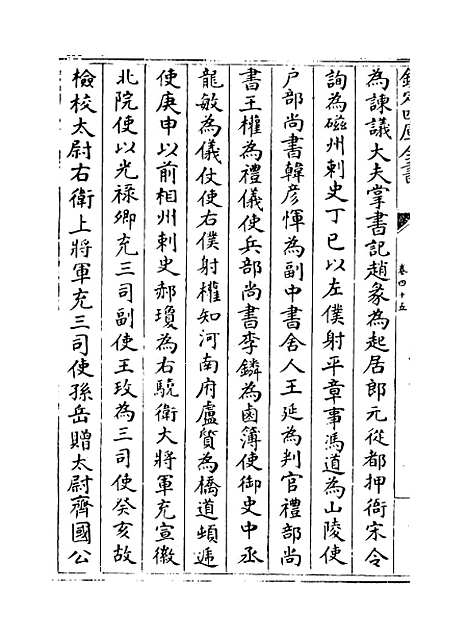 欽定四庫全書
卷四十五
為諫議大夫掌書記趙彖為起居郎元從都押衙宋令
詢為磁州刺史丁巳以左僕射平章事馮道為山陵使
户部尚書韓彦惲為副中書舍人王延為判官禮部尚
書王權為禮儀使兵部尚書李鏻為鹵簿使御史中丞
龍敏為儀仗使右僕射權知河南府盧質為橋道頓遞
使庚申以前相州刺史郝瓊為右驍衛大將軍充宣徽
北院使以光禄卿充三司副使王玫為三司使癸亥故
檢校太尉右衛上將軍充三司使孫岳贈太尉齊國公